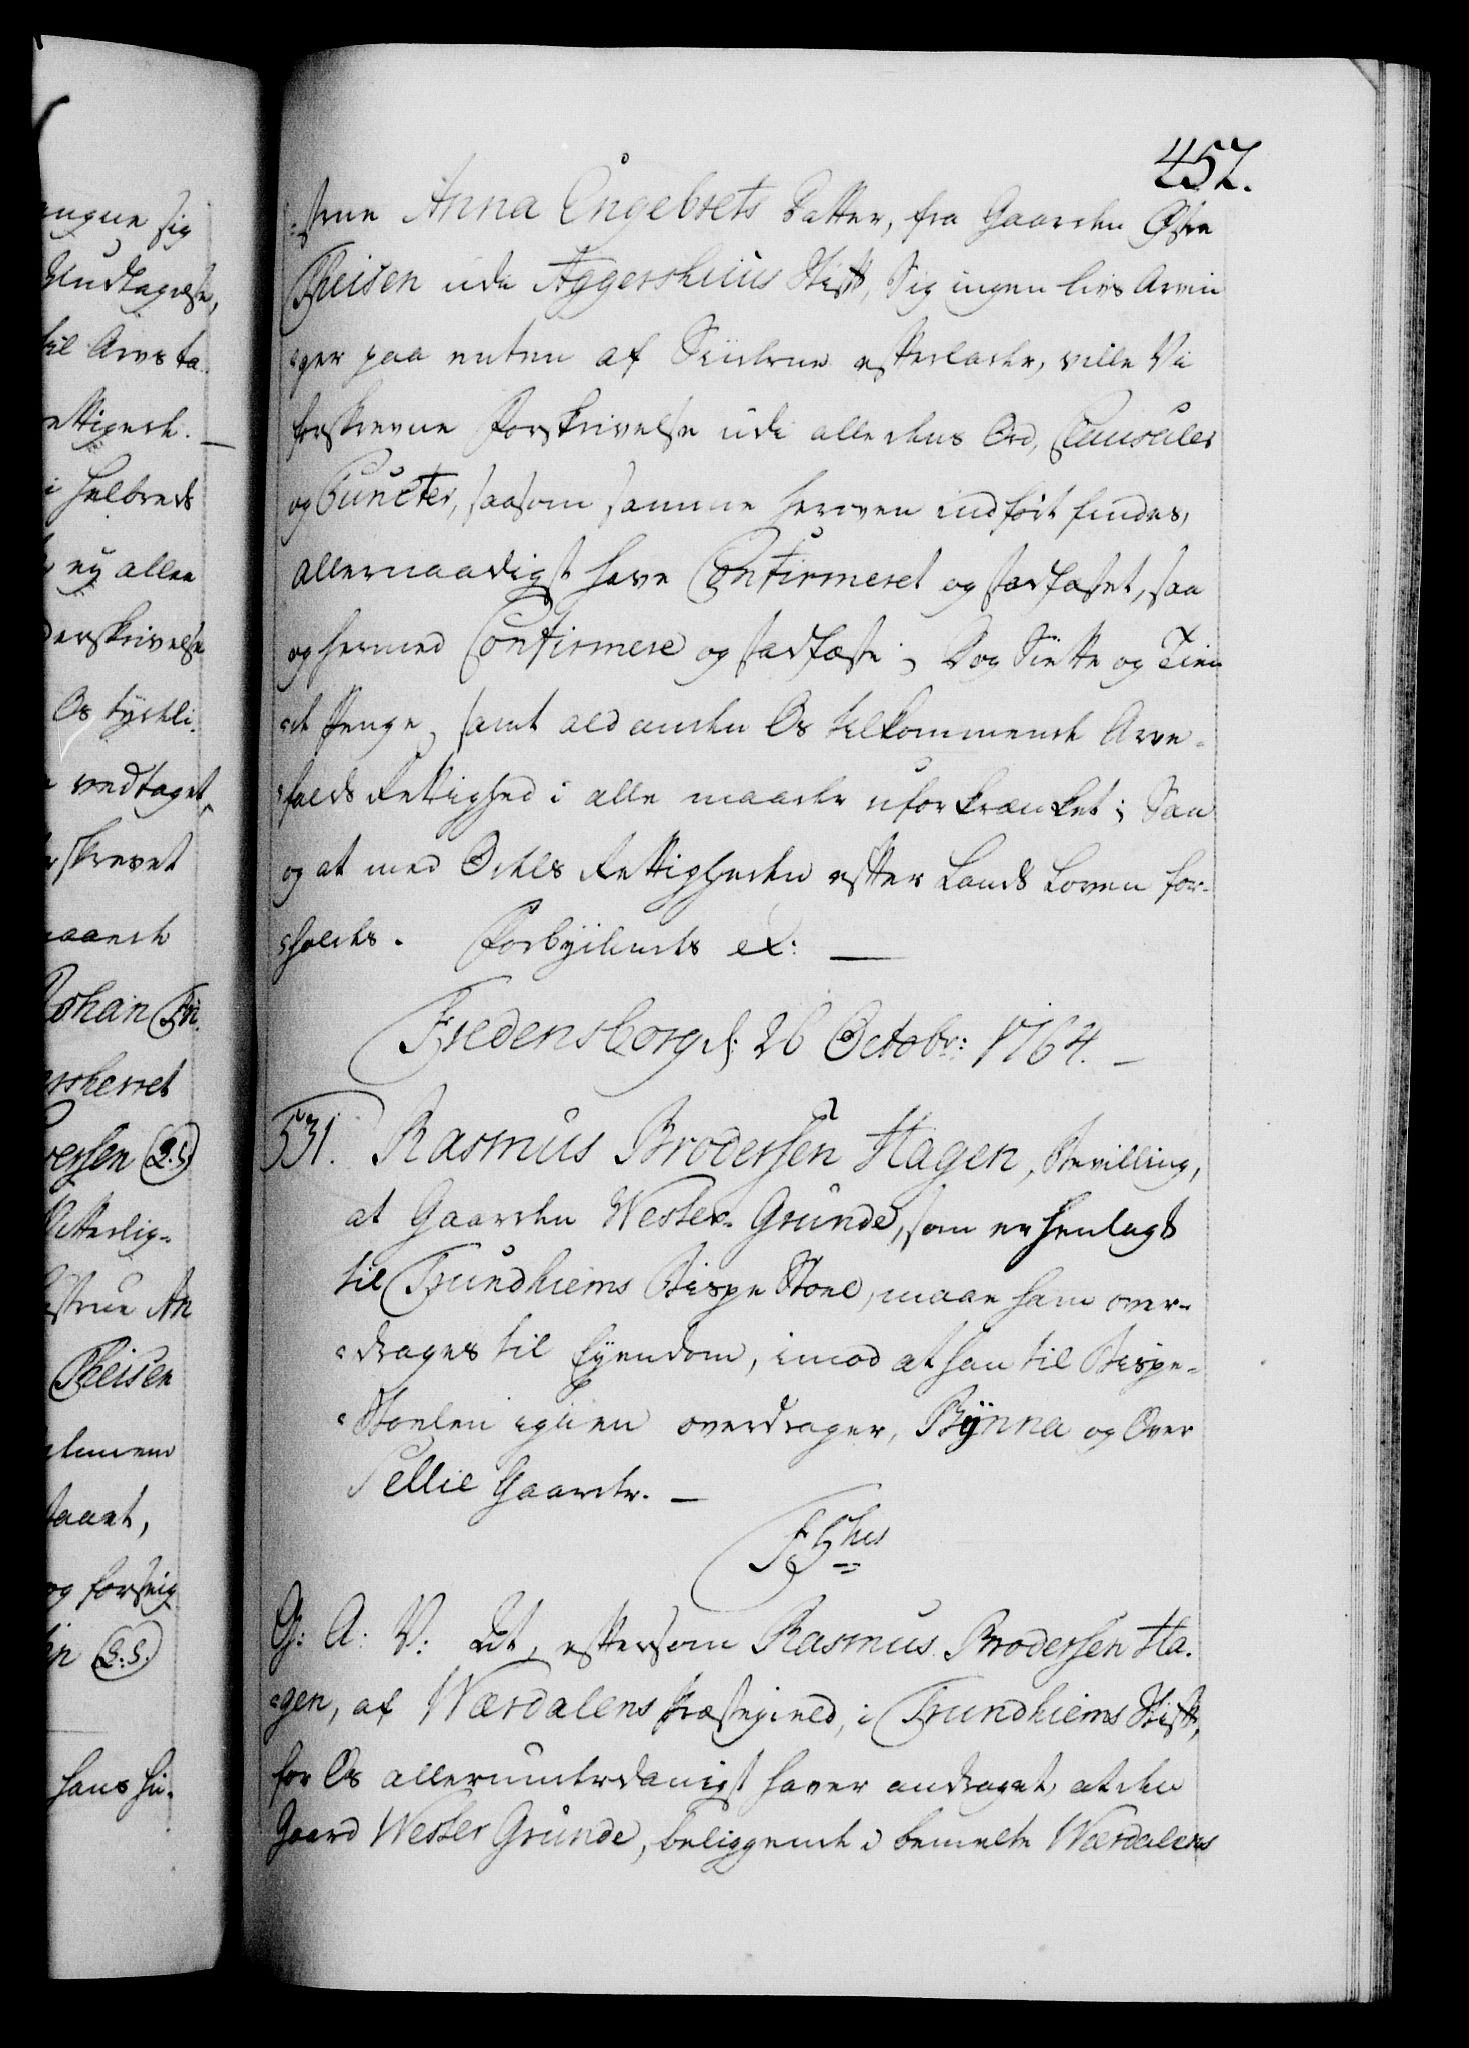 457.
:strue Anna Engebrets Datter, fra Gaarden Østre
Theisen udi Aggershuus Stift, Sig ingen Livs Arvin
:ger paa enten af Siiderne efterlader, ville Vi
forskrevne Forskrivelse udi alle dens Ord, Clausuler
og Puncter, saasom samme herover indført findes,
allernaadigst have Confirmeret og stadfæstet, saa
og hermed Confirmere og stadfæste; Dog Siette og Tien
:de Penge, samt ald anden Os tilkommende Arve-
:falds Rettighed i alle maader uforkrænket; Saa
og at med Odels Rettigheden efter Lands Loven for-
:holdes. Forbydendes etc: —
Fredensborg d: 26 Octobr: 1764. —
531. Rasmus Brodersen Hagen, Bevilling,
at Gaarden Wester-Grunde, som er henlagt
til Trundhiems Bispe Stoel, maae ham over-
:drages til Eyendom, imod at han til Bispe-
:Stoelen igien overdrager, Bÿnna og Over
Tellie Gaarder. —
G: A: V: Vdt, eftersom Rasmus Brodersen Ha-
:gen, af Wærdalens Præstegield, i Trundhiems Stift,
for Os allerunderdanigst haver andraget, at den
Gaard Wester Grunde, beliggende i bemelte Wærdalens
engene sig
til Arvs ta
ettigert. —
i Helbreds
ey allee
derskrivelse
Os tydeli:
vedtaget,
skrevet
Johan Fri
ersherret
versen (L.S.)
etterlig-
strue An
Theisen
staaet,
og forseig
(L:S.)
hans Hu-